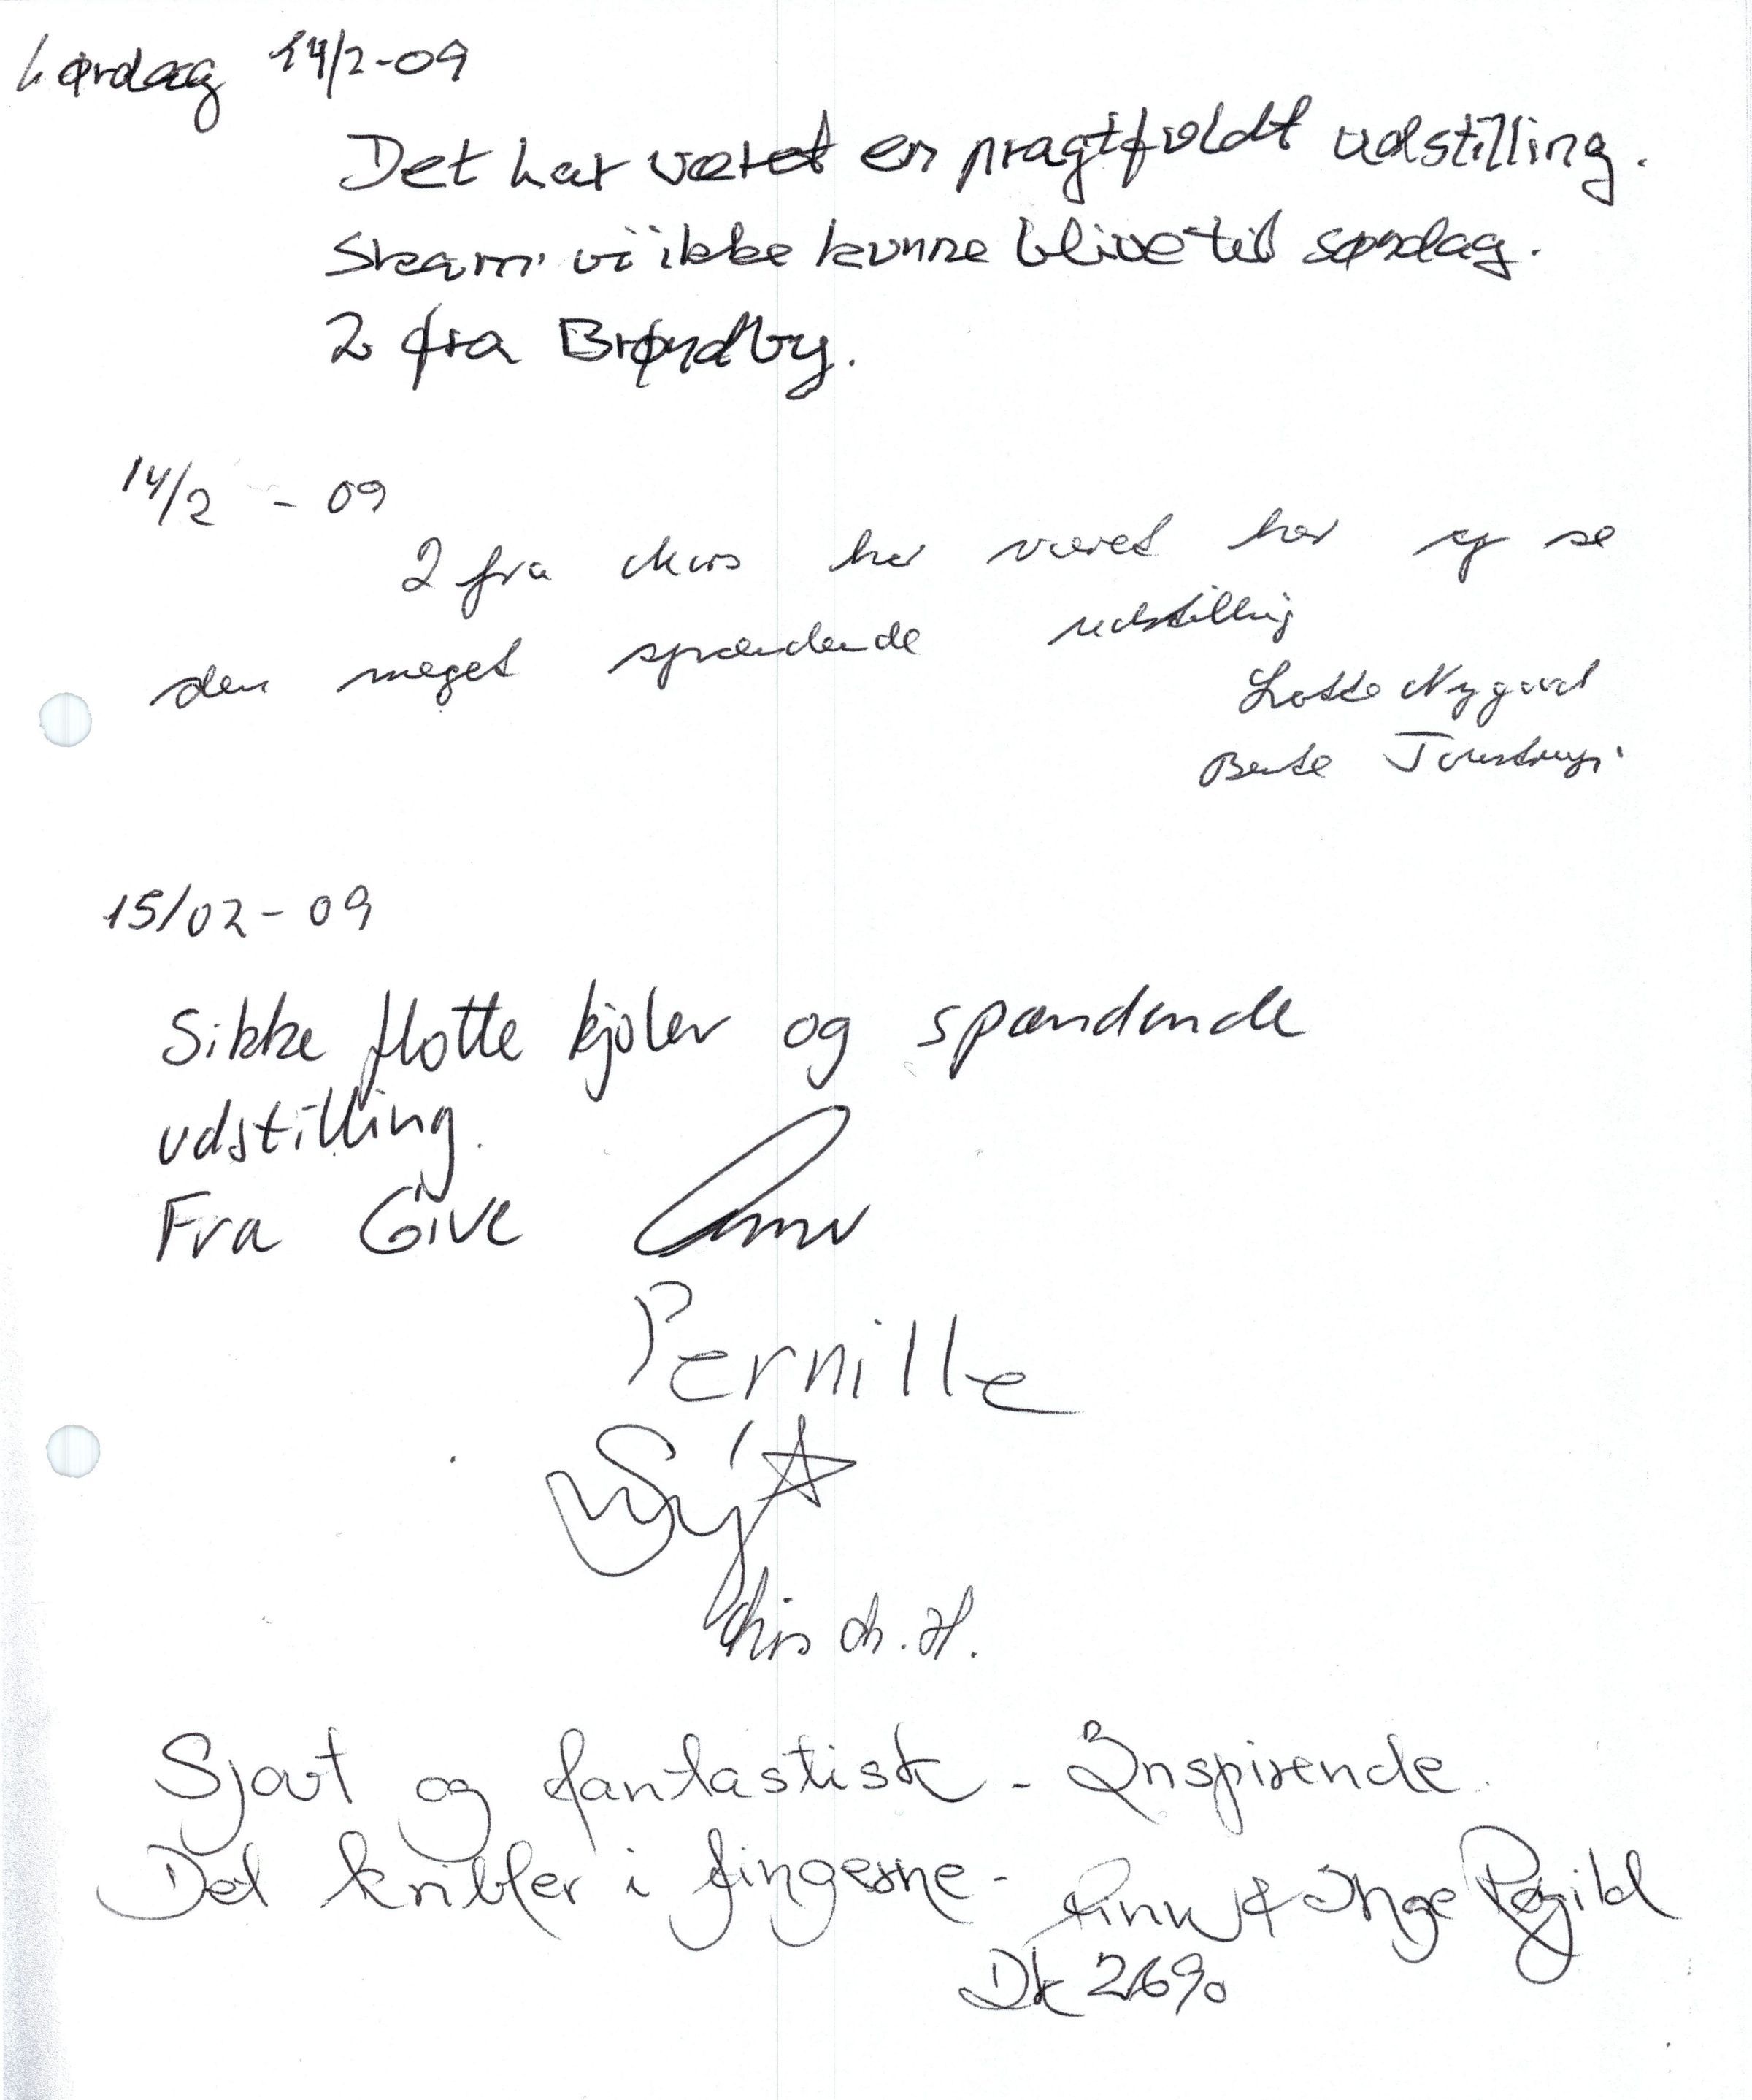 Lørdag 14/2-09
Det har været en pragtfuldt udstilling.
Skam vi ikke kunne blive til søndag.
2 fra Brøndby.
14/2 - 09
2 fra har været her og se
den meget spændende udstilling
Lotte Nygaard
Bente
15/02-09
Sikke flotte kjoler og spændende
udstilling.
Fra Give
Pernille
Sjovt og fantastisk - Inspirende.
Det kribler i fingerne - Finn & Inge Røgild
Dk 2690